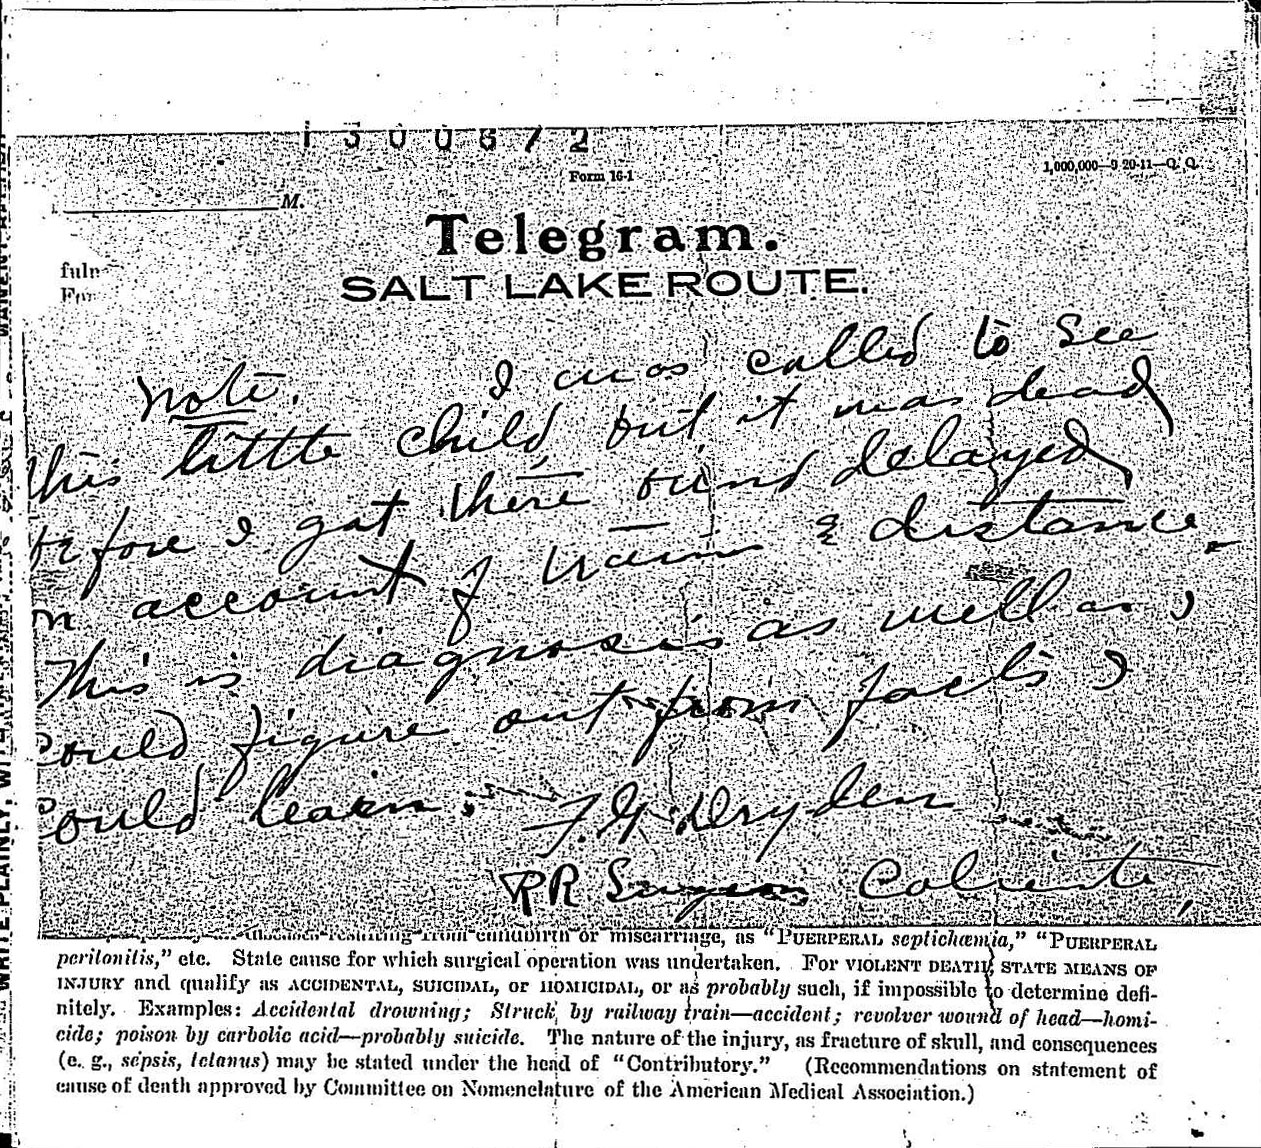 1300672
Form 16-1
1,000,000—9 20-11—Q. Q.
M.
Telegram.
SALT LAKE ROUTE.
Note. I was called to see
this little child, but it was dead
before I got there being delayed
on account of train & distance.
This is diagnosis as well as I
could figure out from facts I
could learn.
F. G. Dryden
RR Surgeon Caliente,
resulting from childbirth or miscarriage, as "PUERPERAL septichæmia," "PUERPERAL
peritonitis," etc. State cause for which surgical operation was undertaken. FOR VIOLENT DEATH, STATE MEANS OF
INJURY and qualify as ACCIDENTAL, SUICIDAL, OR HOMICIDAL, or as probably such, if impossible to determine defi-
nitely. Examples: Accidental drowning; Struck by railway train—accident; revolver wound of head—homi-
cide; poison by carbolic acid—probably suicide. The nature of the injury, as fracture of skull, and consequences
(e. g., sepsis, tetanus) may be stated under the head of "Contributory." (Recommendations on statement of
cause of death approved by Committee on Nomenclature of the American Medical Association.)
WRITE PLAINLY,